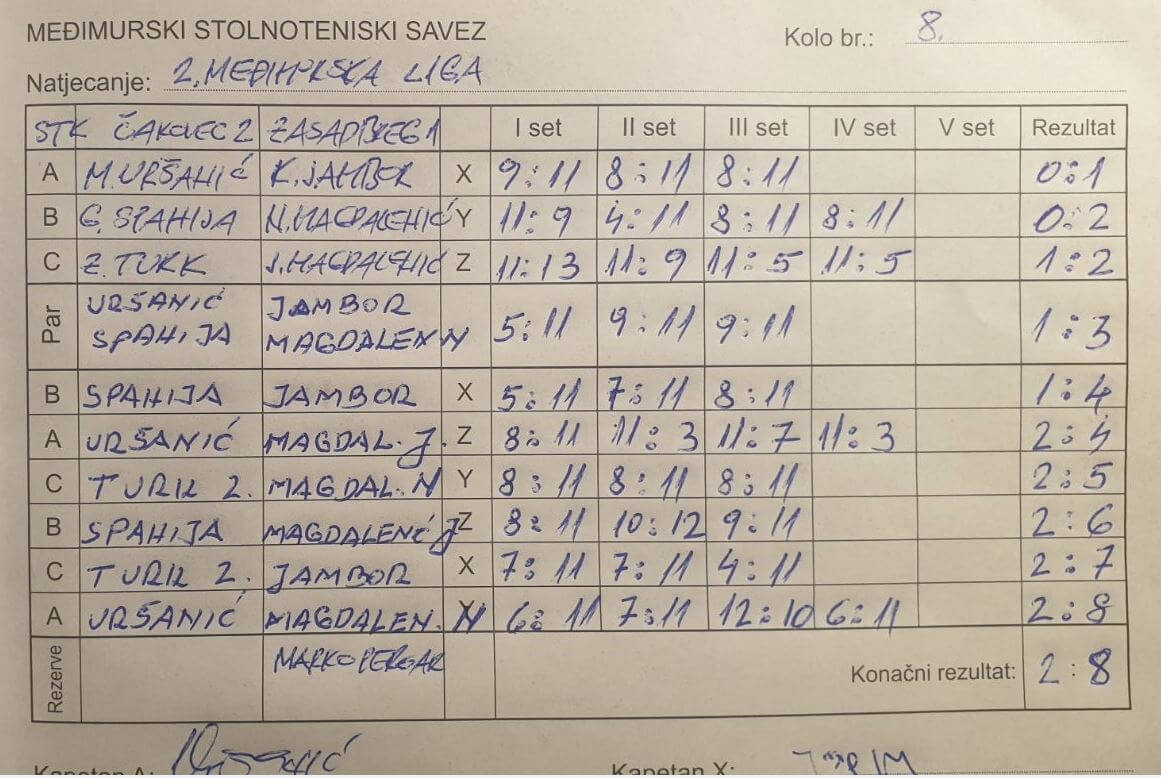 MEĐIMURSKI STOLNOTENISKI SAVEZ Kolo br.: 8.
Natjecanje: 2. MEĐIMURSKA LIGA
STK ČAKOVEC 2 ZASADBREG 1 I set II set III set IV set V set Rezultat
A M. URŠANIĆ K. JAMBOR X 9:11 8:11 8:11 0:1
B G. SPAHIJA N. MAGDALENIĆ Y 11:9 4:11 8:11 8:11 0:2
C Z. TURK J. MAGDALENIĆ Z 11:13 11:9 11:5 11:5 1:2
Par URŠANIĆ JAMBOR
SPAHIJA MAGDALEN N 5:11 9:11 9:11 1:3
B SPAHIJA JAMBOR X 5:11 7:11 8:11 1:4
A URŠANIĆ MAGDAL. J. Z 8:11 11:3 11:7 11:3 2:4
C TURK Z. MAGDAL. N Y 8:11 8:11 8:11 2:5
B SPAHIJA MAGDALENIĆ J Z 8:11 10:12 9:11 2:6
C TURK Z. JAMBOR X 7:11 7:11 4:11 2:7
A URŠANIĆ MAGDALEN. N Y 6:11 7:11 12:10 6:11 2:8
Rezerve MARKO PERGAR Konačni rezultat: 2:8
Kapetan A: Kapetan X: